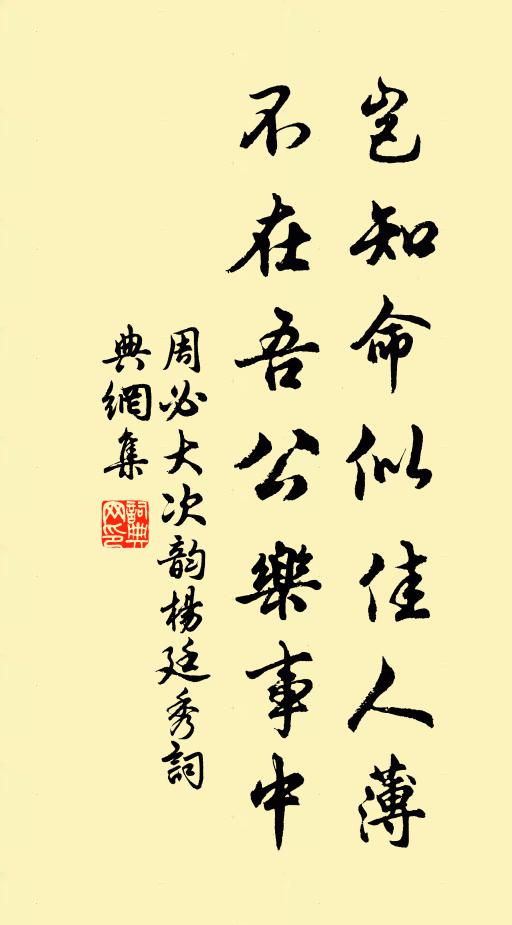 豈知命似佳人薄
不在吾公樂事中
周必大次韵楊廷秀詞
典網集
詞典網印